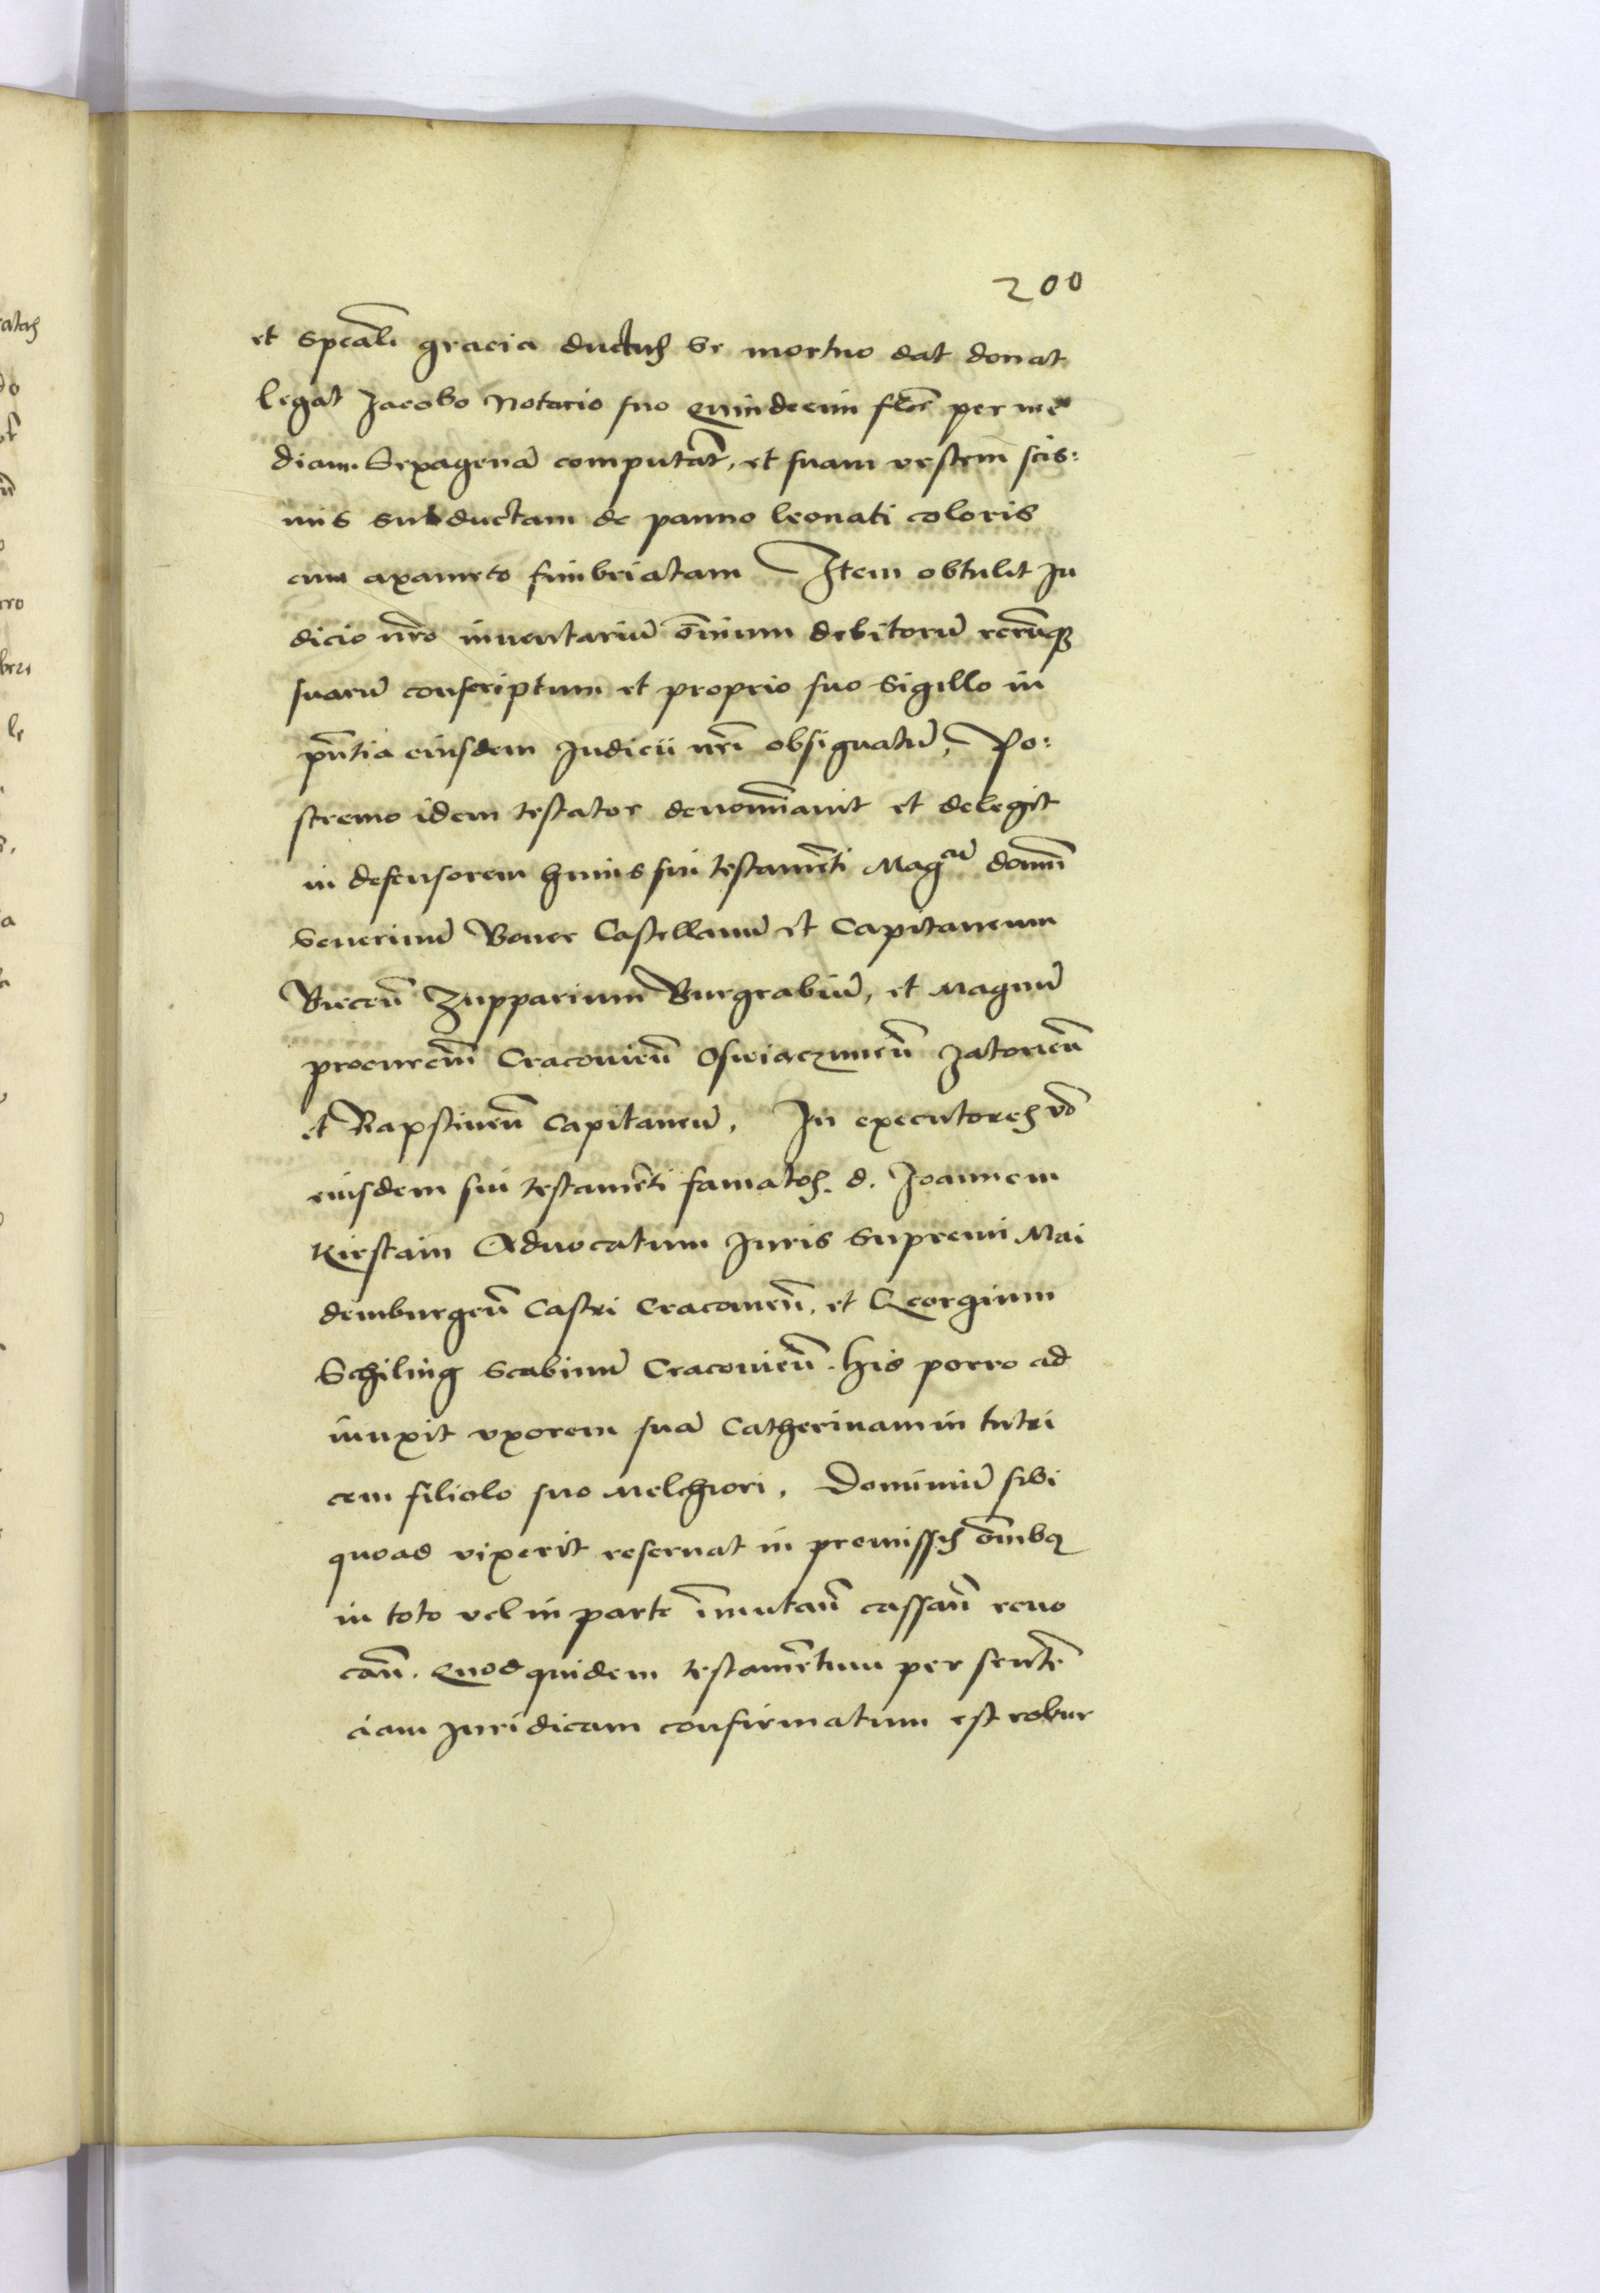 200
et Speãli gracia ductus se mortuo dat donat
legat Jacobo Notario suo quindecim floñ per me
diam Sexagenã computãt, et suam vestem scis:
mis subductam de panno leonati coloris
cum axameto fimbriatam Item obtulit Ju
dicio nr̃o inuentariũ õmnium debitorũ rerũq̃
suarũ conscriptum et proprio suo Sigillo in
pñtia eiusdem Judicii nrĩ obsignatũ, Po:
stremo idem testator denomĩauit et delegit
in defensorem huius sui testamẽti Mag^cũ domĩ
Seuerinũ Boner Castellanũ et Capitaneum
Biecẽn Zupparium Burgrabiũ, et Magnũ
procurem̃ Cracouieñ Osviaczimeñ Zatorieñ
et Rapstineñ Capitaneũ, In executores vo
eiusdem sui testamẽti famatos. d. Joannem
Kirstain Aduocatum Juris Supremi Mai
demburgeñ Castri Cracouieñ, et Georgium
Schiling Scabinũ Cracouieñ. his porro ad
iunxit vxorem suã Catherinam in tutri
cem filiolo suo Melchiori, Dominiũ sibi
quoad vixerit reseruat in premissis õmibq
in toto vel in parte ĩmutañ cassañ reuo
cañ. Quod quidem testamẽtum per senteñ
ciam Juridicam confirmatum est robur